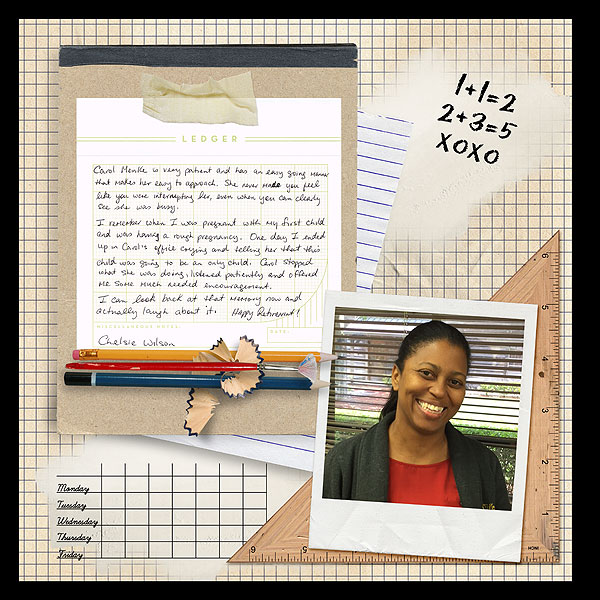 1+1=2
2+3=5
XOXO
LEDGER
Carol Menke is very patient and has an easy going manner
that makes her easy to approach. She never made you feel
like you were interrupting her, even when you can clearly
see she was busy.
I remember when I was pregnant with my first child
and was having a rough pregnancy. One day I ended
up in Carol's office crying and telling her that this
child was going to be an only child. Carol stopped
what she was doing, listened patiently and offered
me some much needed encouragement.
I can look back at that memory now and
actually laugh about it. Happy Retirement!
MISCELLANEOUS NOTES:
DATE:
Chelsie Wilson
6
5
4
3
2
1
INCH
6 5 4 3 2
Monday
Tuesday
Wednesday
Thursday
Friday